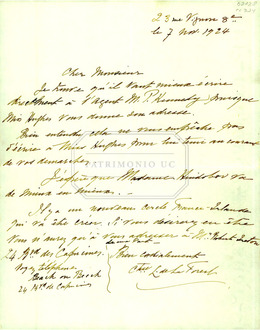 23 rue Vignon 8e
le 7 Nov. 1924
Cher Monsieur
Je trouve qu'il vaut mieux écrire
directment à l'agent M. P. Kennedy puisque
Miss Hughes vous donne son adresse.
Bien entendu cela ne vous empêche pas
d'écrire à Miss Hughes pour la tenir au courant
de vos démarches.
J'espère que Madame Huidobro va
de mieux en mieux.
PATRIMONIO UC
Il y a un nouveau cercle France-Irlande
qui va être créer. Si vous désirez en être
vous n'aurez qu'à vous adresser à Mr Robert
24 Bd des Capucines
Bien cordialement
24 Bd des Capucines